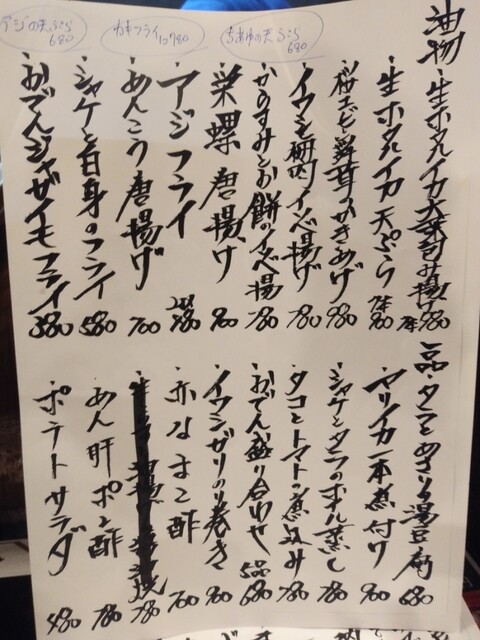 アジの天ぷら 680
カキフライ 780
ちあゆの天ぷら 680
油物
・生ホタルイカ大葉包み揚げ 980
・生ホタルイカ天ぷら 900
・桜エビと舞茸のかきあげ 980
・イワシ梅肉イソベ揚げ 780
・かのすみとお餅のイソベ揚 780
・栄螺唐揚げ 900
・アジフライ 780
・あんこう唐揚げ 700
・シャケと白身のフライ 580
・おでんジャガイモフライ 380
一品
・タラとあさりの湯豆腐 680
・ヤリイカ一本煮付け 900
・シャケとタラのホイル蒸し 780
・タコとトマトの煮込み 780
・おでん盛り合わせ 5品 680
・イワシガリのり巻き 900
・赤なまこ酢 700
780
・あん肝ポン酢 780
・ポテトサラダ 480